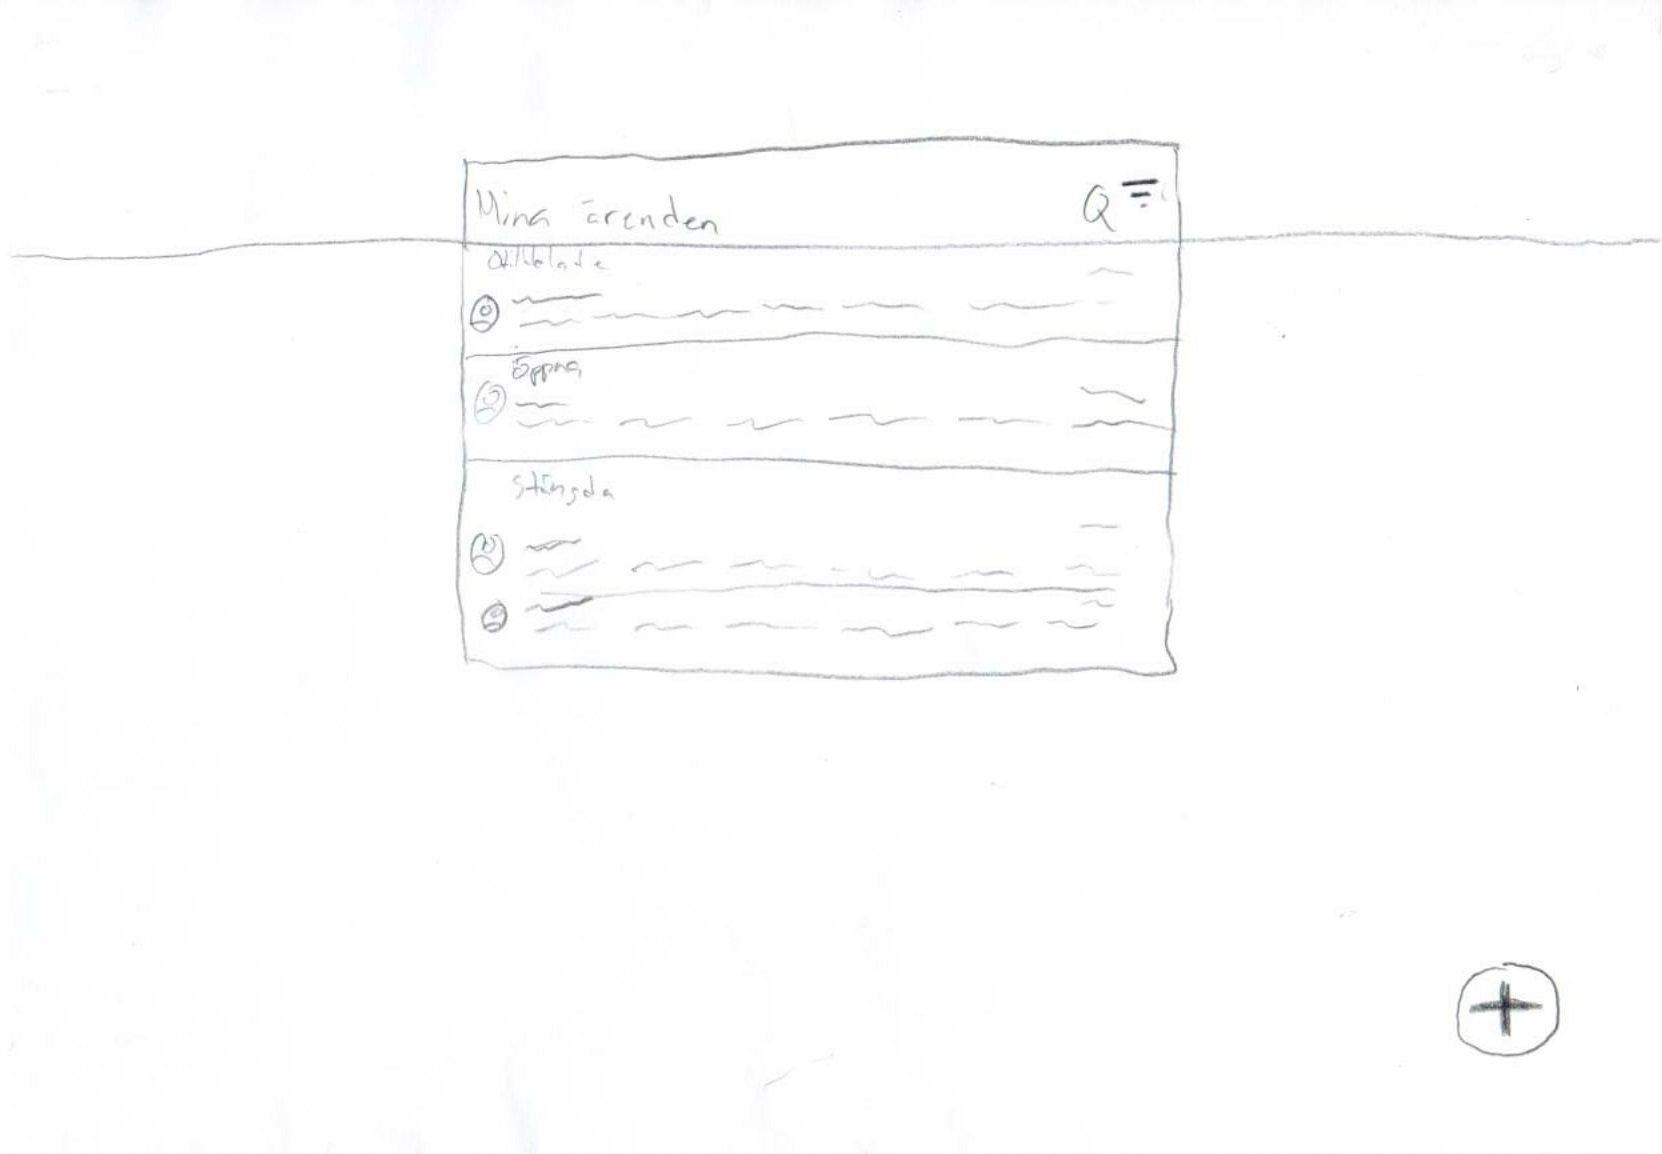 Mina ärenden
Otilldelade
Öppna
Stängda